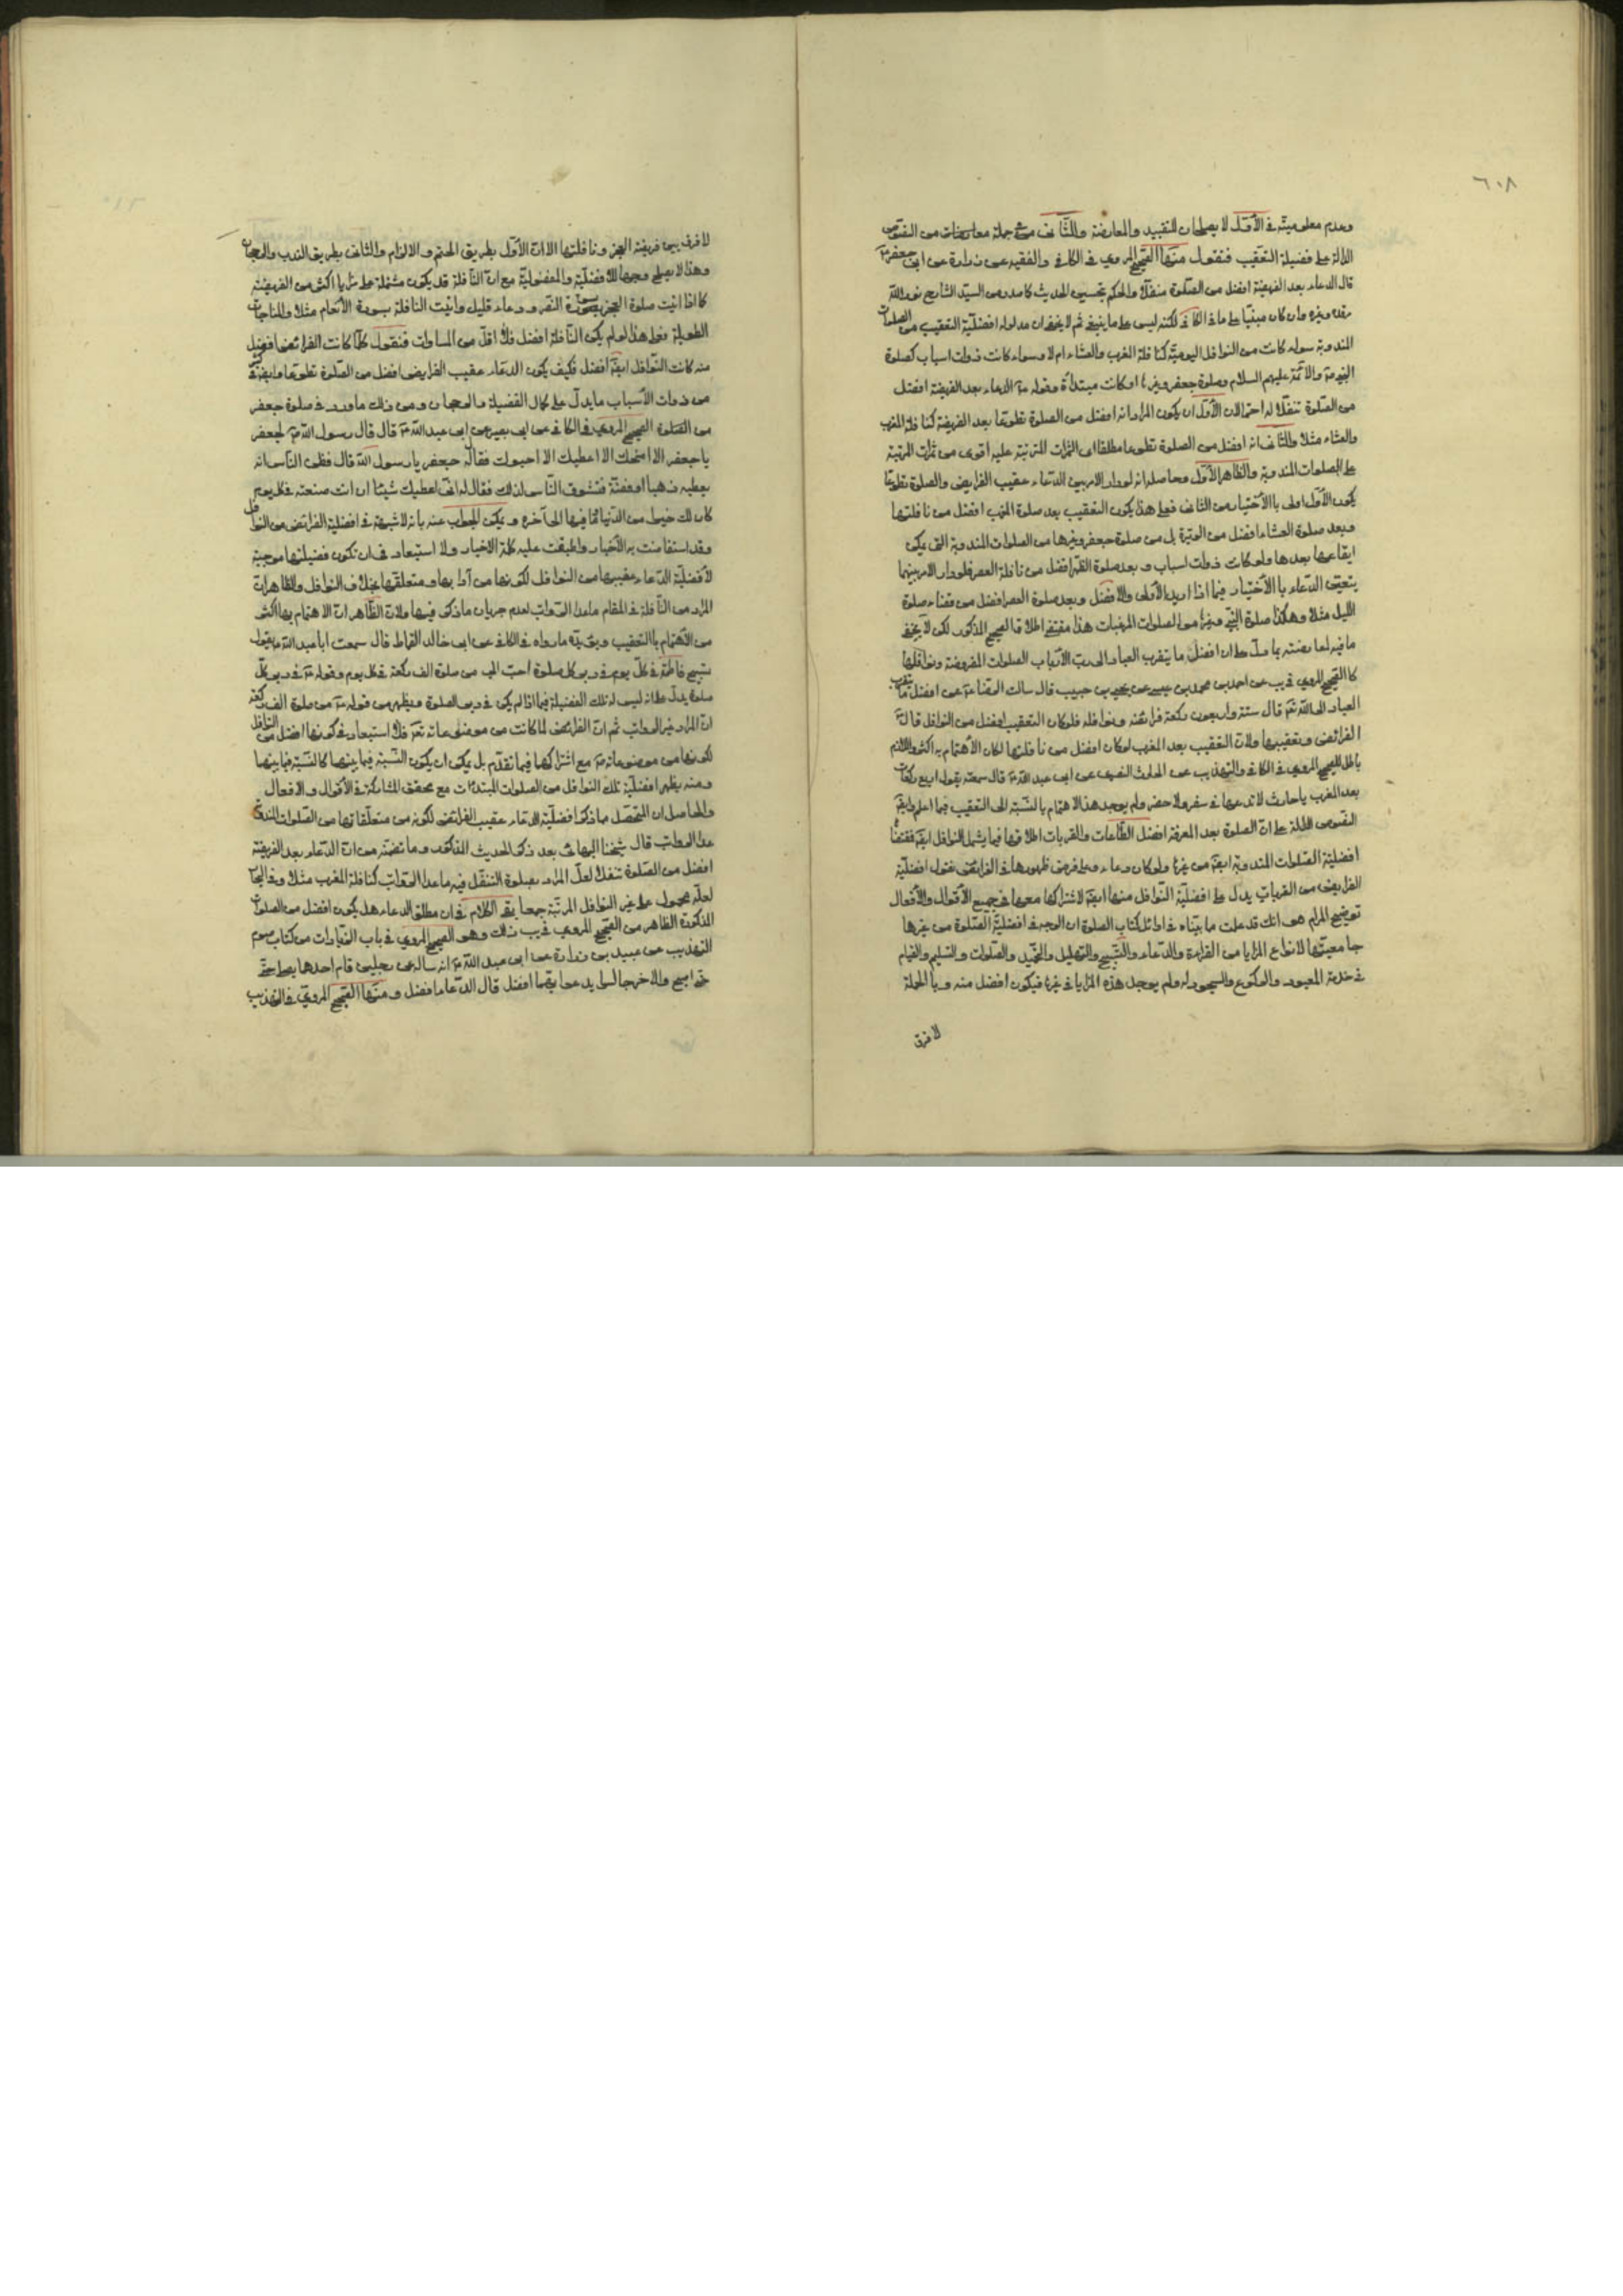 ٦٠٨
وعدم معلوميته في الأول لا يصلحان للتقييد والمعارضة والثاني في جملة معارضات من النصوص
الدالة على فضيلة التعقيب فنقول منها الصحيح المروي في الكافي والفقيه عن زرارة عن ابي جعفر ع
قال الدعاء بعد الفريضة افضل من الصلوة تنفلا والحكم بتحسين الحديث كما صدر من السيد الشارح نور الله
مرقده وغيره وان كان مبنيا على ما في الكافي لكنه ليس على ما ينبغي ثم لا يخفى ان مدلوله افضلية التعقيب من الصلوات
المندوبة سواء كانت من النوافل اليومية كنافلة المغرب والعشاء ام لا وسواء كانت ذوات اسباب كصلوة
النبي ص والائمة عليهم السلام وصلوة جعفر وغيرها او كانت مبتدأة وقوله ع الدعاء بعد الفريضة افضل
من الصلوة تنفلا له احتمالان الأول ان يكون المراد انه افضل من الصلوة تطوعا بعد الفريضة كنافلة المغرب
والعشاء مثلا والثاني انه افضل من الصلوة تطوعا مطلقا اي الثمرات المترتبة عليه اقوى من ثمرات المرتبة
على الصلوات المندوبة والظاهر الأول وحاصله انه لو دار الامر بين الدعاء عقيب الفرايض والصلوة تطوعا
يكون الأول اولى بالاختيار من الثاني فعلى هذا يكون التعقيب بعد صلوة المغرب افضل من نافلتها
وبعد صلوة العشاء افضل من الوتيرة بل من صلوة جعفر وغيرها من الصلوات المندوبة التي يمكن
ايقاعها بعدها ولو كانت ذوات اسباب وبعد صلوة الظهر افضل من نافلة العصر فلو دار الامر بينهما
يتعين الدعاء بالاختيار فيما اذا اريد الأولى والافضل وبعد صلوة العصر افضل من قضاء صلوة
الليل مثلا وهكذا صلوة الفجر وغيرها من الصلوات المرغبات هذا مقتضى اطلاق الصحيح المذكور لكن لا يخفى
ما فيه لمعارضته بما دل على ان افضل ما يتقرب العباد الى رب الأرباب الصلوات المفروضة ونوافلها
كالصحيح المروي في يب عن احمد بن محمد بن عيسى عن يحيى بن حبيب قال سالت الرضا ع عن افضل ما يتقرب
العباد الى الله تع قال ستة واربعون ركعة فرائضه ونوافله فلو كان التعقيب افضل من النوافل قال
الفرائض وتعقيبها ولان التعقيب بعد المغرب لو كان افضل من نافلتها لكان الاهتمام به اكثر واللازم
باطل للصحيح المروي في الكافي والتهذيب عن الحارث النضري عن ابي عبد الله ع قال سمعته يقول اربع ركعات
بعد المغرب يا حارث لا تدعها في سفر ولا حضر ولم يوجد هذا الاهتمام بالنسبة الى التعقيب فيما اعلم وايضا
النصوص الدالة على ان الصلوة بعد المعرفة افضل الطاعات والقربات اطلاقها فيما يشمل النوافل ايضا فمقتضاها
افضلية الصلوات المندوبة ايضا من غيرها ولو كان دعاء وعلى فرض ظهورها في الفرائض نقول افضلية
الفرايض من القربات يدل على افضلية النوافل منها ايضا لاشتراكها معها في جميع الأقوال والأفعال
توضيح المرام هو انك قد علمت ما بيناه في اوائل كتاب الصلوة ان الوجه في افضلية الصلوة من غيرها
جامعيتها لانواع المزايا من القراءة والدعاء والتسبيح والتهليل والتحميد والصلوات والتسليم والقيام
في خدمة المعبود والركوع والسجود له ولم يوجد هذه المزايا في غيرها فيكون افضل منه وبالجملة
لا فرق
لا فرق بين فريضة الفجر ونافلتها الا ان الأول بطريق الحتم والالزام والثاني بطريق الندب والرجحان
وهذا لا يصلح وجها للافضلية والمفضولية مع ان النافلة قد يكون مشتملة على مزايا اكثر من الفريضة
كما اذا اتيت صلوة الفجر بسورة النصر ودعاء قليل واتيت النافلة بسورة الأنعام مثلا والمناجات
الطويلة فعلى هذا لو لم يكن النافلة افضل فلا اقل من المساوات فنقول كلما كانت الفرائض افضل
منه كانت النوافل ايضا افضل فكيف يكون الدعاء عقيب الفرايض افضل من الصلوة تطوعا وايضا في كثير
من ذوات الأسباب ما يدل على كمال الفضيلة والرجحان ومن ذلك ما ورد في صلوة جعفر
من الصلوة الصحيح المروي في الكافي عن ابي بصير عن ابي عبد الله ع قال قال رسول الله ص لجعفر
يا جعفر الا امنحك الا اعطيك الا احبوك فقال له جعفر يا رسول الله قال فظن الناس انه
يعطيه ذهبا او فضة فتشوف الناس لذلك فقال له اني اعطيك شيئا ان انت صنعته في كل يوم
كان لك خيرا من الدنيا وما فيها الى آخره ويمكن الجواب عنه بانه لا شبهة في افضلية الفرائض من النوافل
وقد استفاضت به الأخبار واطبقت عليه كلمة الاخيار ولا استبعاد في ان تكون فضيلتها موجبة
لأفضلية الدعاء عقيبها من النوافل لكونها من آدابها ومتعلقها بخلاف النوافل والظاهر ان
المراد من النافلة في المقام ما عدا الرواتب لعدم جريان ما ذكر فيها ولان الظاهر ان الاهتمام بها اكثر
من الاهتمام بالتعقيب ويؤيده ما رواه في الكافي عن ابي خالد القماط قال سمعت ابا عبد الله ع يقول
تسبيح فاطمة في كل يوم في دبر كل صلوة احب الي من صلوة الف ركعة في كل يوم وقوله ع في دبر كل
صلوة يدل على انه ليس له تلك الفضيلة فيما اذا لم يكن في دبر الصلوة ويظهر من قوله ع من صلوة الف ركعة
ان المراد غير الرواتب ثم ان الفرائض لما كانت من موضوعاته تع فلا استبعاد في كونها افضل من النوافل
لكونها من موضوعاته ص مع اشتراكها فيما تقدم بل يمكن ان يكون النسبة فيما بينهما كالنسبة فيما بينهما
ومنه يظهر افضلية تلك النوافل من الصلوات المبتدئات مع تحقق المشاركة في الأقوال والافعال
والحاصل ان المتحصل مما ذكر افضلية الدعاء عقيب الفرائض لكونه من متعلقاتها من الصلوات المندوبة
عدا الرواتب قال شيخنا البهائي بعد ذكر الحديث المذكور وما تضمنه من ان الدعاء بعد الفريضة
افضل من الصلوة تنفلا لعل المراد بصلوة التنفل فيه ما عدا الرواتب كنافلة المغرب مثلا وفي البحار
لعله محمول على غير النوافل المرتبة جمعا بقي الكلام في ان مطلق الدعاء هل يكون افضل من الصلوات
المذكورة الظاهر من الصحيح المروي في يب ذلك وهو الصحيح المروي في باب الزيادات من كتاب صوم
التهذيب عن عبيد بن زرارة عن ابي عبد الله ع انه ساله عن رجلين قام احدهما يصلي حتى
اصبح والاخر جالسا يدعو ايهما افضل قال الدعاء افضل ومنها الصحيح المروي في التهذيب